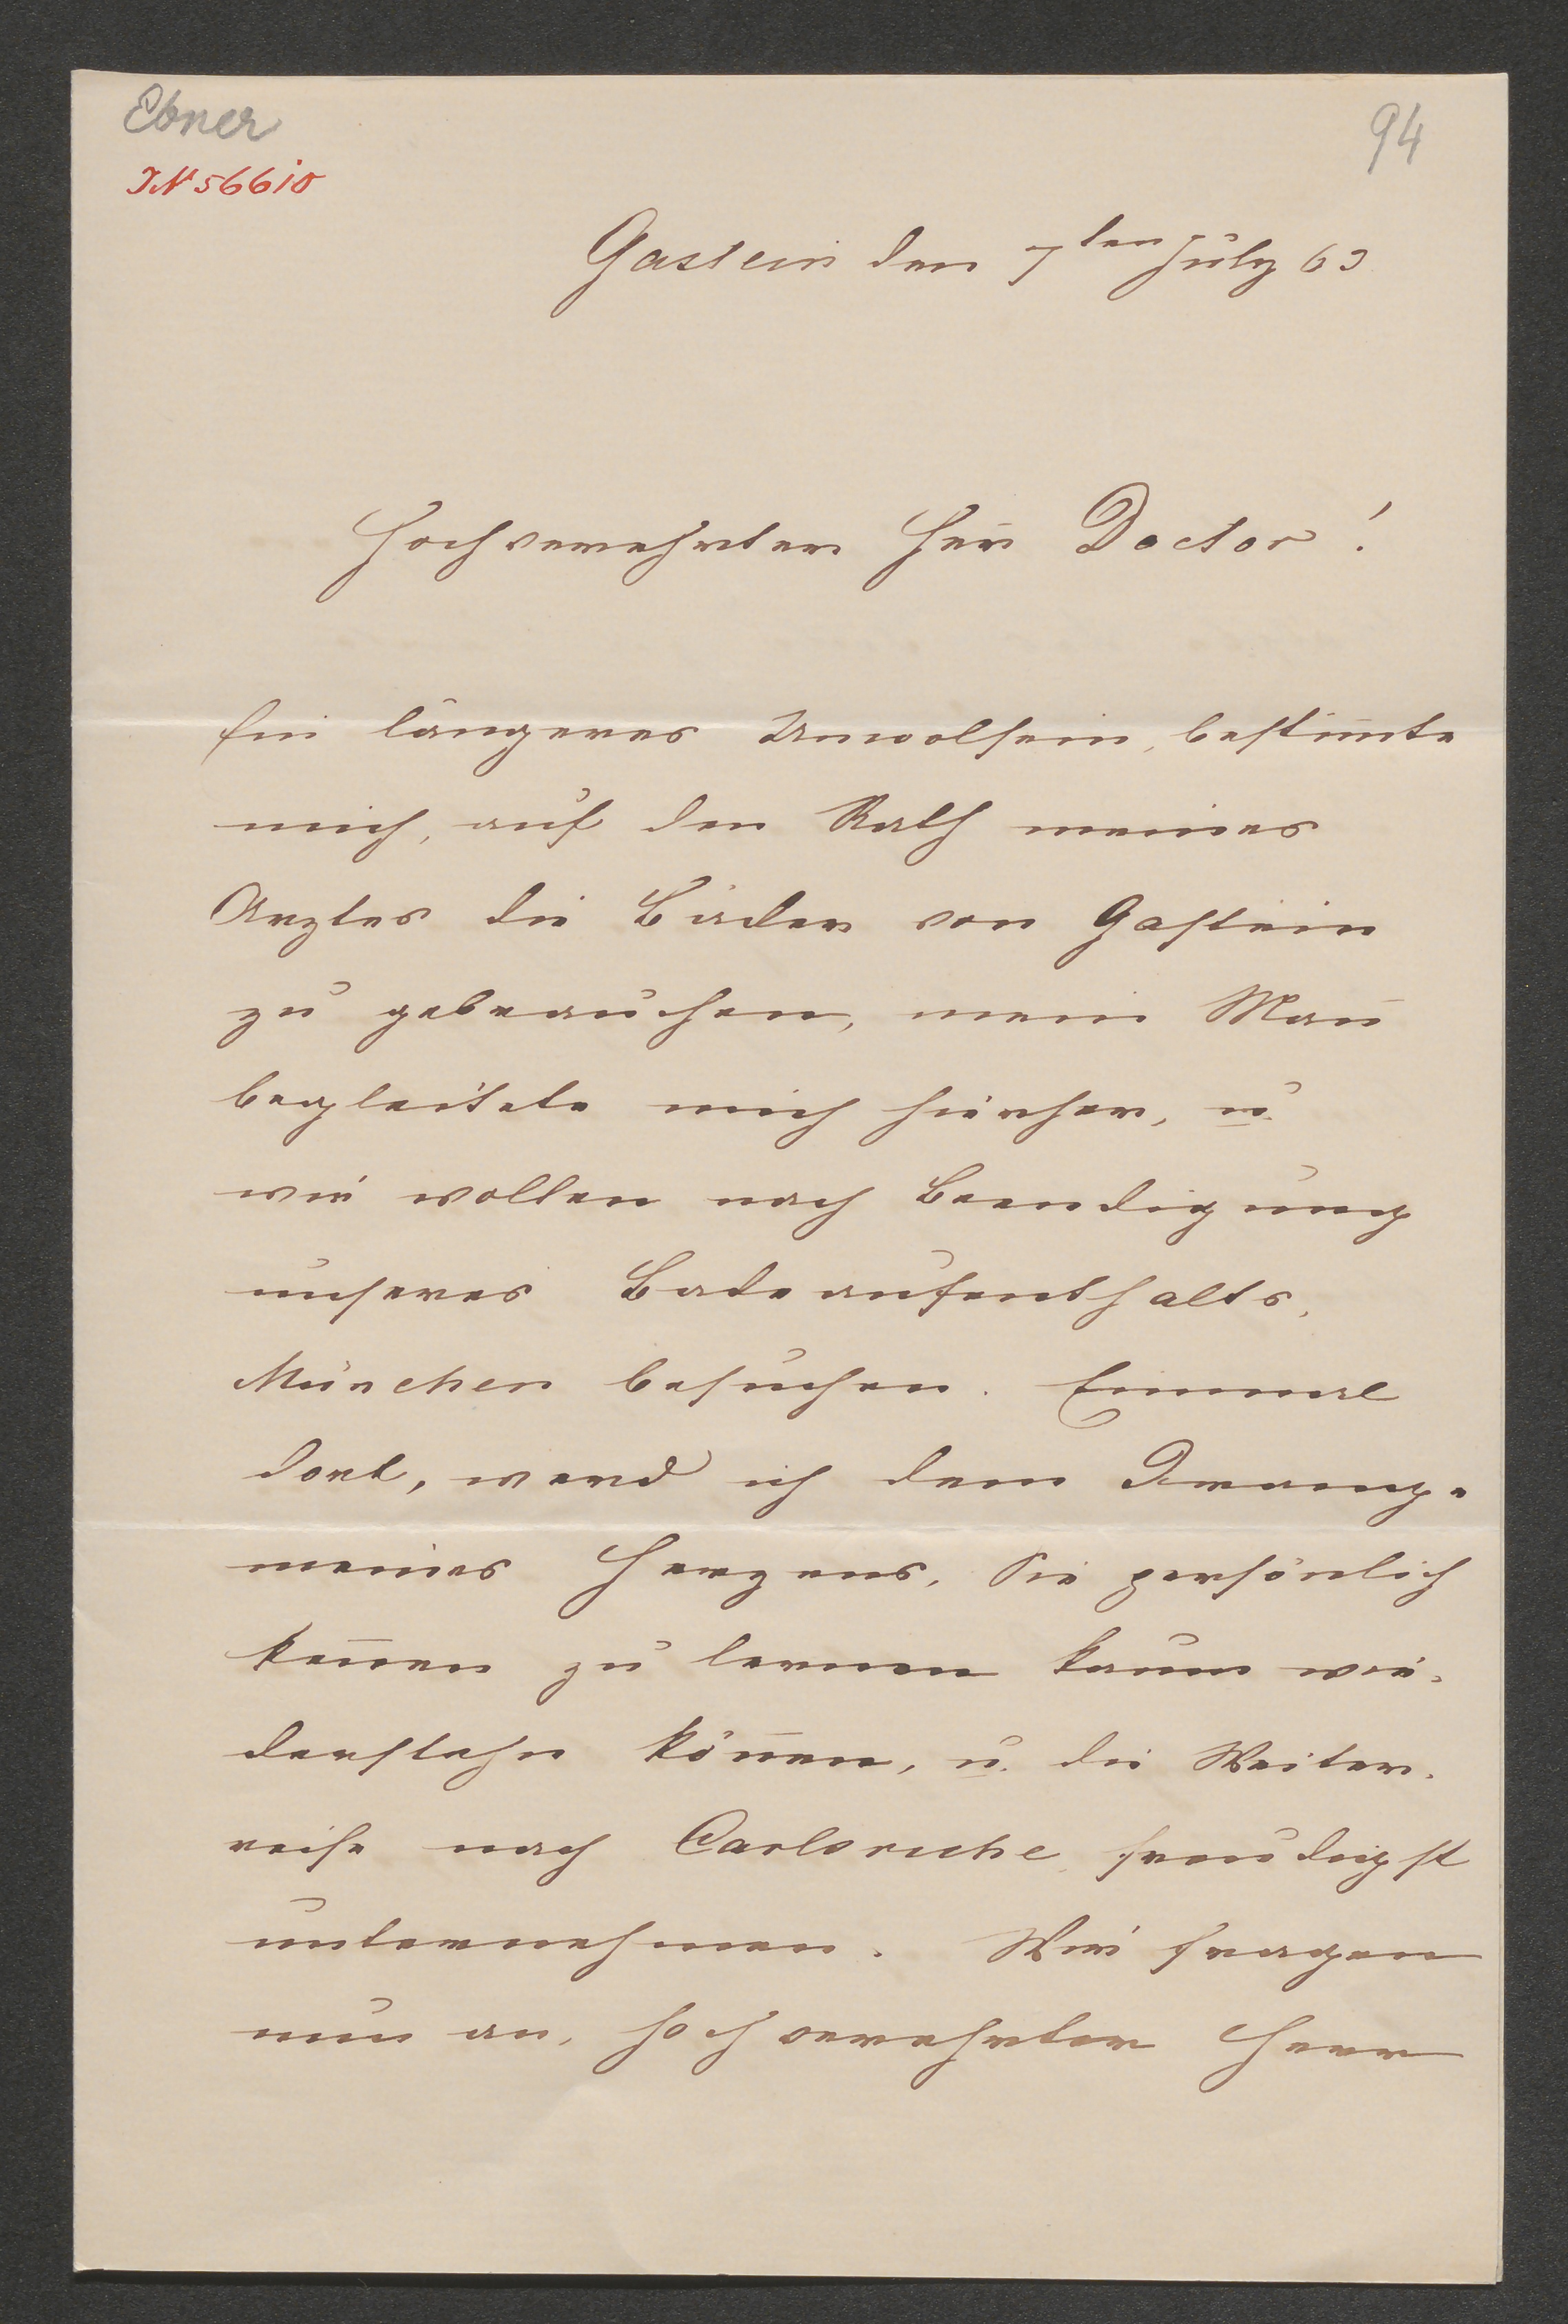 Ebner
94
IN 56610
Gastein den 7ten July 63
Hochverehrter Herr Doctor!
Ein längeres Unwolsein, bestim̄te
mich, auf den Rath meines
Arztes die Bäder von Gastein
zu gebrauchen, mein Man̄
begleitete mich hierher, u.
wir wollen nach Beendigung
unseres Badeaufenthalts,
München besuchen. Einmal
dort, werd ich dem Drange
meines Herzens, Sie persönlich
ken̄en zu lernen kaum wie-
derstehn kön̄en, u. die Weiter-
reise nach Carlsruhe, freudigst
unternehmen. Wir fragen
nun an, hochverehrter Herr